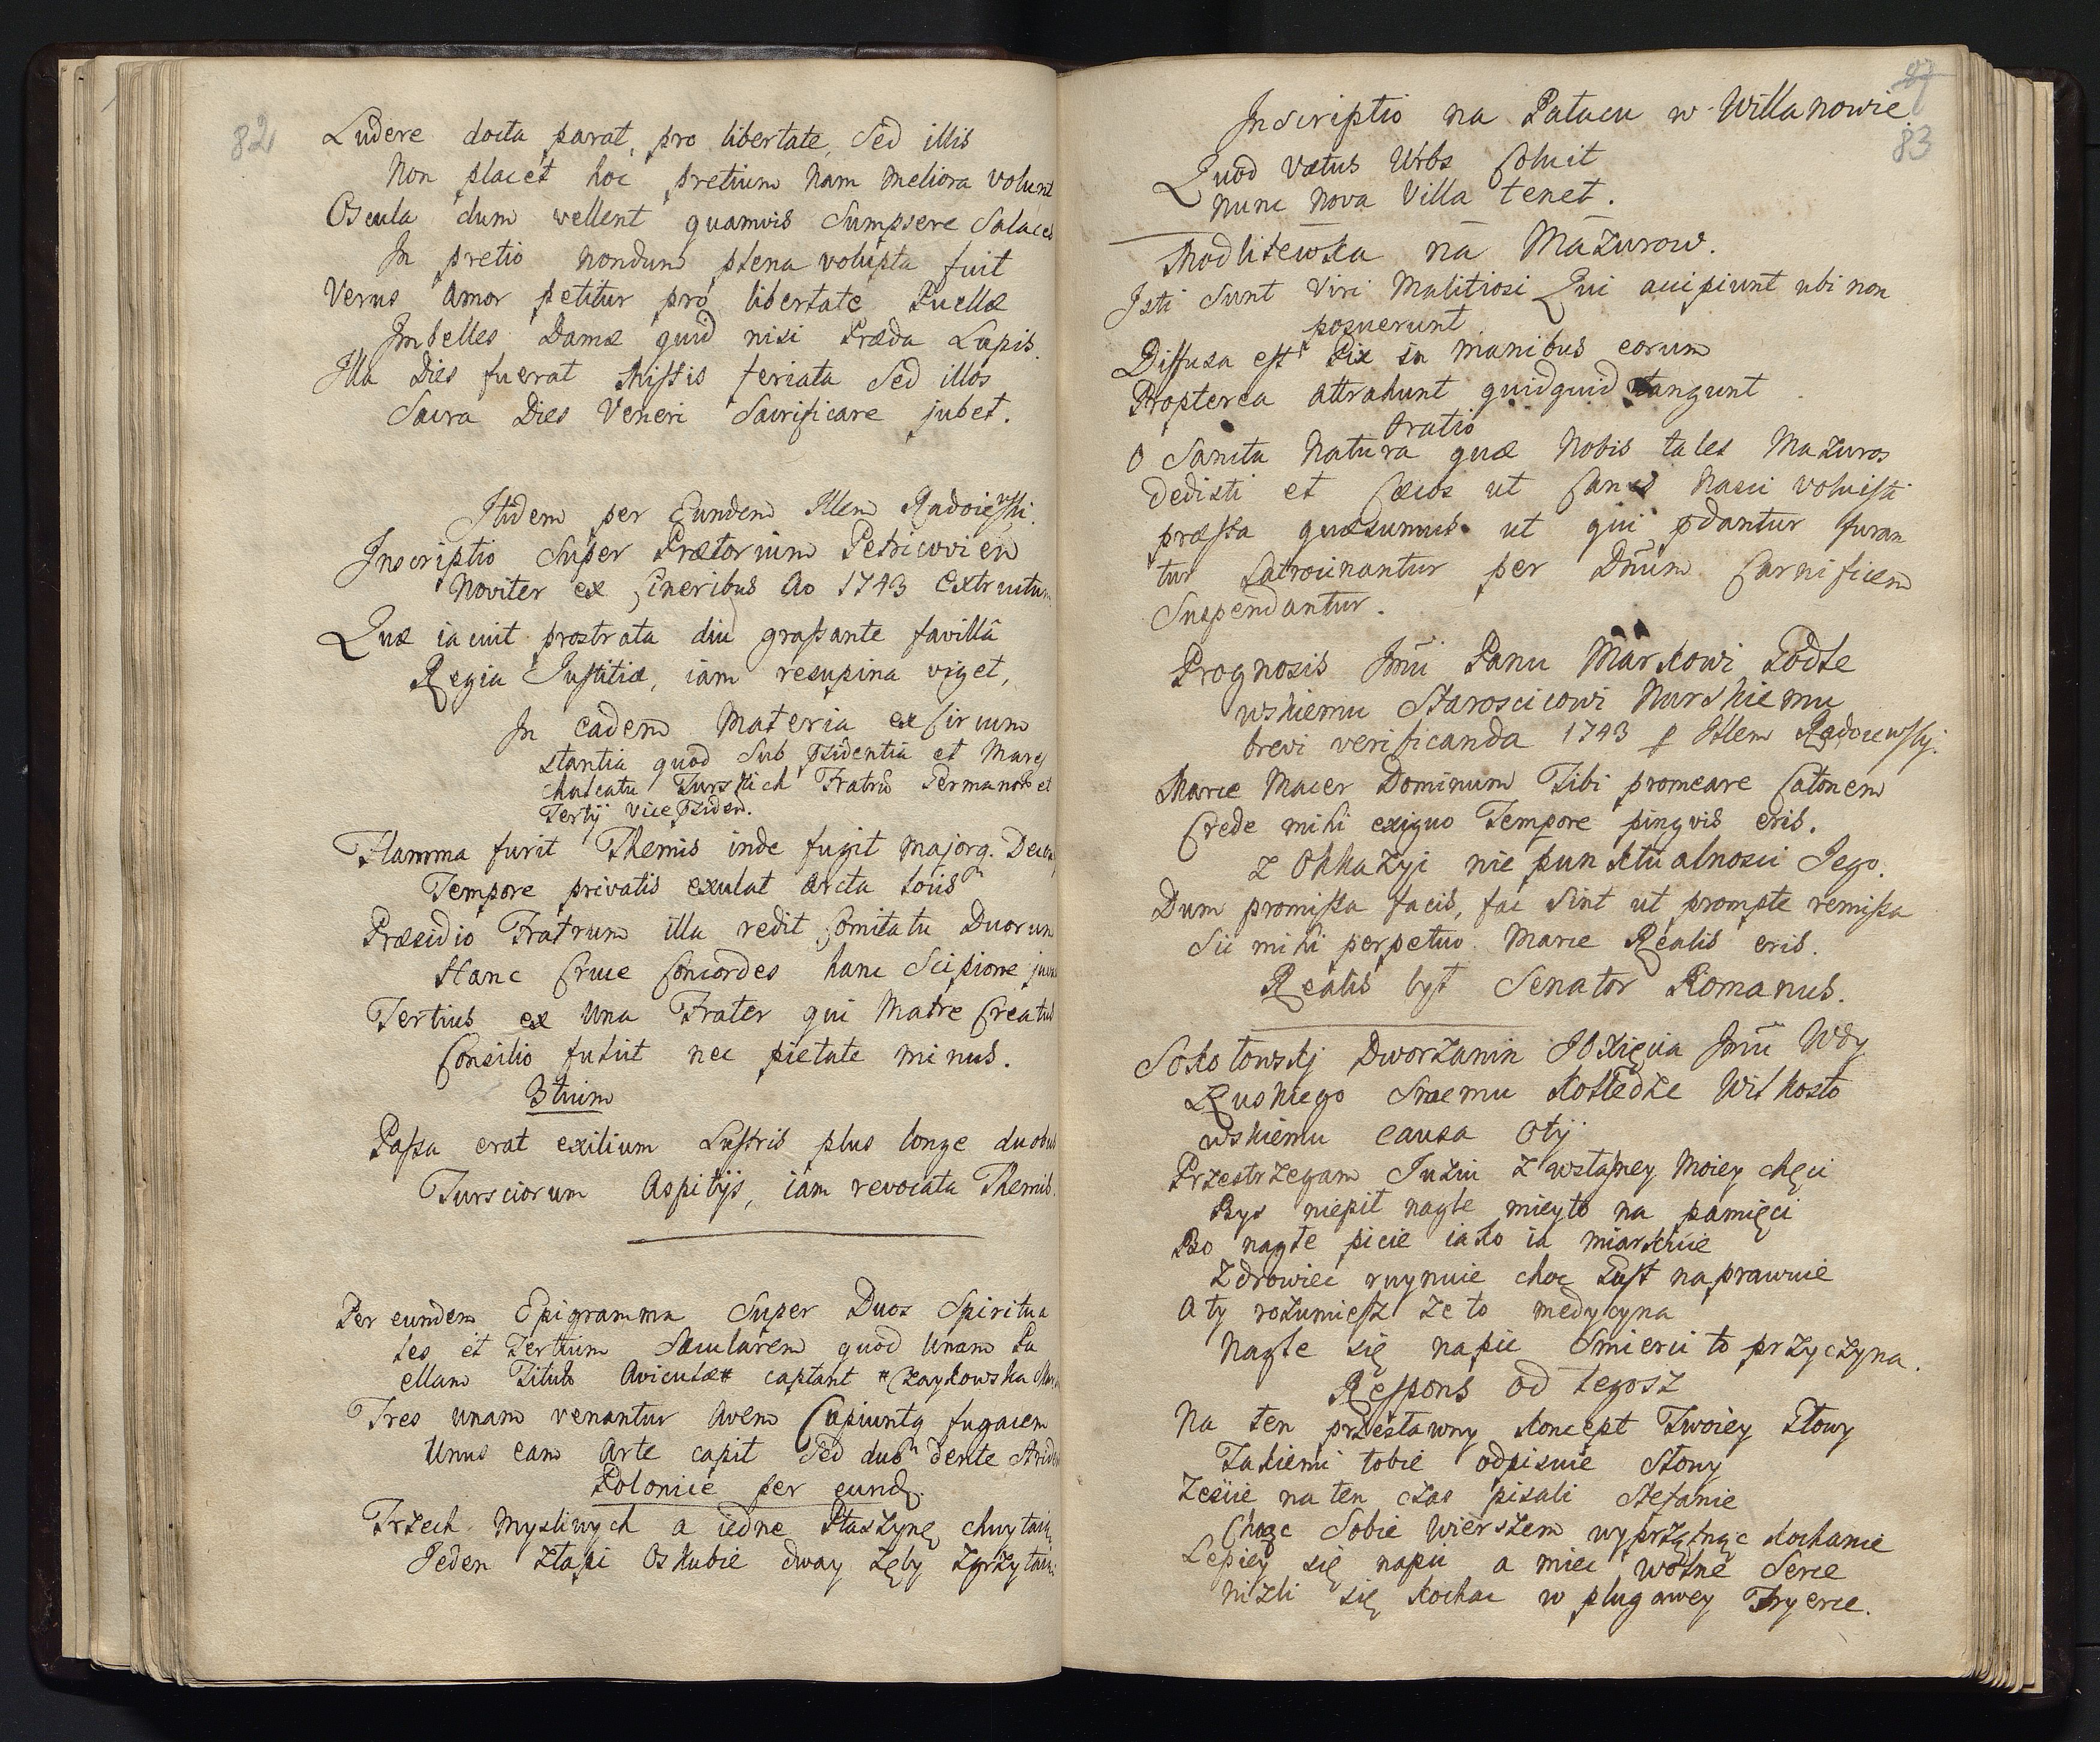 82
Ludere docta parat, pro libertate, Sed illis
Non placet hoc pretium Nam Meliora volunt
Oscula dum vellent quamvis Sumpsere Salaces
In pretio nondum plena volupta fuit
Verus Amor petitur pro libertate Puellæ
Imbelles Damæ quid nisi Præda Lupis.
Illa Dies fuerat Mistis feriata Sed illos
Sacra Dies Veneri Sacrificare jubet.
Itidem per Eundem Illem Radoiewski.
Inscriptio Super Prætorium Petricovien
Noviter ex Cineribus Ao 1743 Extructum
Quæ iacuit prostrata diu graßante favillâ
Regia Justitiæ, iam resupina viget,
In eadem Materia ex Circum
stantia quod Sub Psidentia et Mare
chalcatu Turskich Fratrū Germanor et
Tertij Vice Psiden.
Flamma furit Themis inde fugit Majorq. Decus
Tempore privatis exulat arcta Locis
Præsidio Fratrum illa redit Comitatu Duorum
Hanc Cruce Concordes hanc Scipione
Tertius ex Una Frater qui Matre Creatus
Consilio fulsit nec pietate minus.
3tium
Paßa erat exilium Lustris plus longe duobus
Tursciorum Aspitijs, iam revocata Themis.
Per eundem Epigramma Super Duos Spiritua
les et Tertium Sæcularem quod Unam Pu
ellam Titulo Aviculæ# captant #Czaykowska
Tres unam venantur Avem Capiuntq fugacem
Unus eam Arte capit Sed duo dente
Polonice per eund.
Trzech Mysliwych a iedne Ptaszynę chwytaią
Jeden złapi Oskubie dway zęby zgrzytaią
87
83
Inscriptio na Pałacu w Willanowie
Quod Vetus Urbs Coluit
Nunc Nova Villa tenet.
Modlitewka na Mazurow.
Isti Sunt Viri Malitiosi Qui accipiunt ubi non
posuerunt
Diffusa est Pix in Manibus eorum
Propterea Attrahunt quidquid tangunt
Oratio
O Sancta Natura quæ Nobis tales Mazuros
dedisti et Cæcos ut Canes Nasci voluisti
præsta quæsumus ut qui pdantur furan
tur Latrocinantur per Dnūm Carnificem
Suspendantur.
Prognosis Jmći Panu Markowi Podle
wskiemu Staroscicowi Nurskiemu
brevi verificanda 1743 p Illem Radoiewskj.
Marce Macer Dominum Tibi promeare Catonem
Crede mihi exiguo Tempore pingvis eris.
Z Okkazyi nie punktualnosci Jego.
Dum promißa facis, fac Sint ut prompte remißa
Sic mihi perpetuo Marce Realis eris.
Realis był Senator Romanus.
Sokołowskj Dworzanin JOXięcia Jmći Wdy
Ruskiego Swemu Kolledze Wilkosło
wskiemu causa Otij
Przestrzegam Juziu z wstasney Moiey chęci
Bys niepił nagle mieyto na pamięci
Bo nagłe picie iako ia miarkuie
Zdrowiec ruynuie choc Gust naprawuie
A ty rozumiesz ze to medycyna
Nagle się napic Smierci to przyczyna.
Respons od tegosz
Na ten przesławny Koncept Twoiey Głowy
Takiemi tobie odpisuie Słowy
Zescie na ten czas pisali Stefanie
Chcąc Sobie Wierszem wyprzętnąc Kochanie
Lepiey się napic a miec wolne Serce
Nizli się Kochac w plugawey Fryerce.